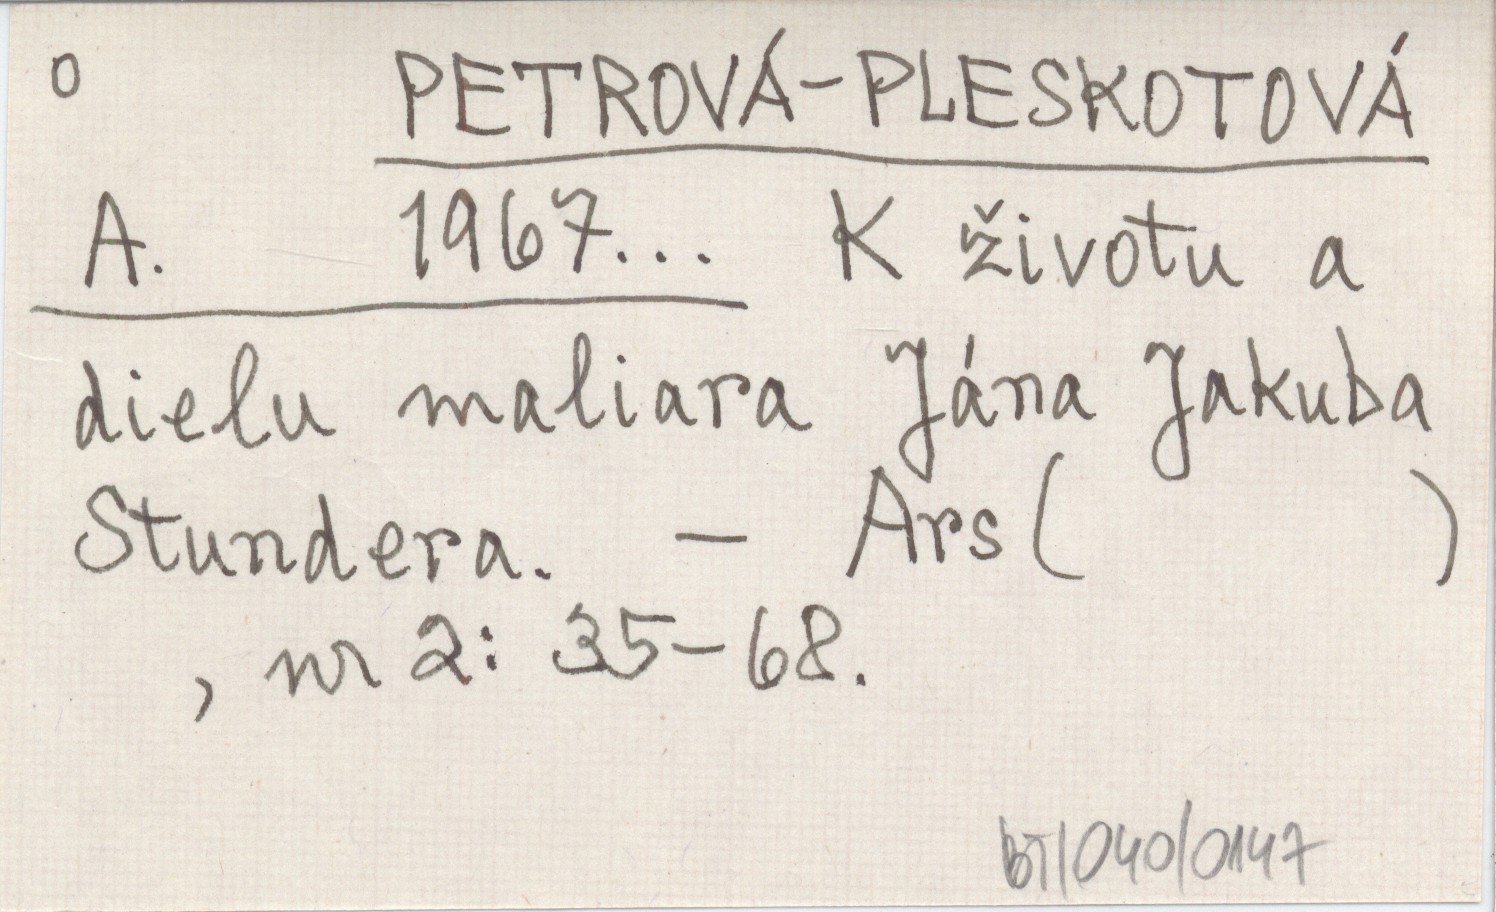 o PETROVÁ-PLESKOTOVÁ
A. 1967... K životu a
dielu maliara Jána Jakuba
Stundera. - Ars( )
, nr 2: 35-68.
BT/040/0147